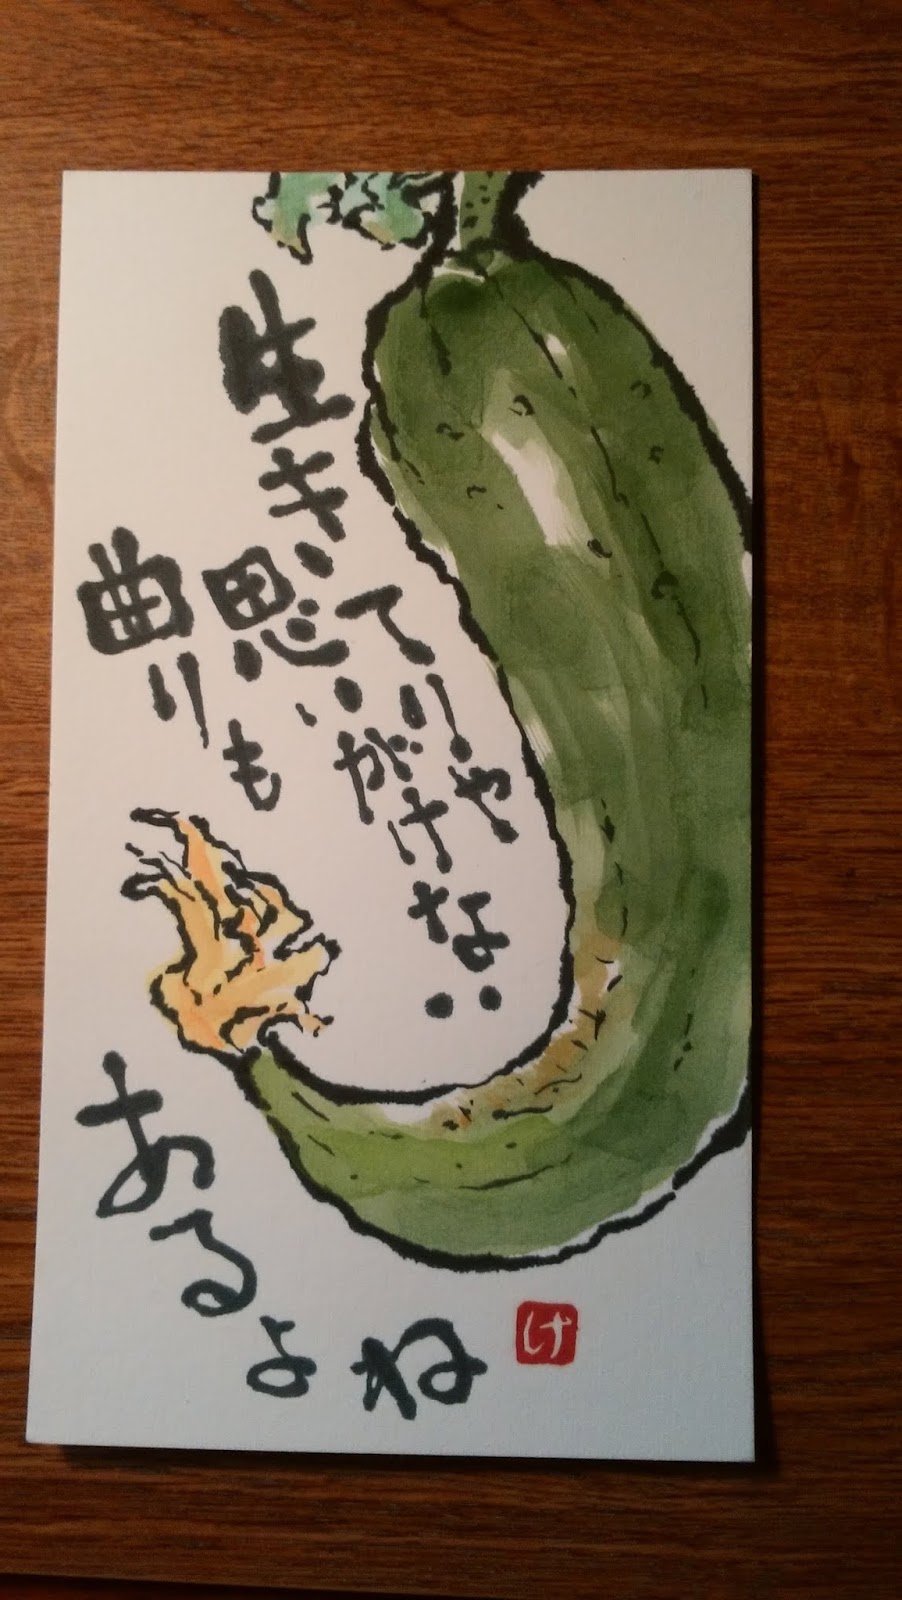 生きてりゃ
思いがけない
曲りも
あるよね
け